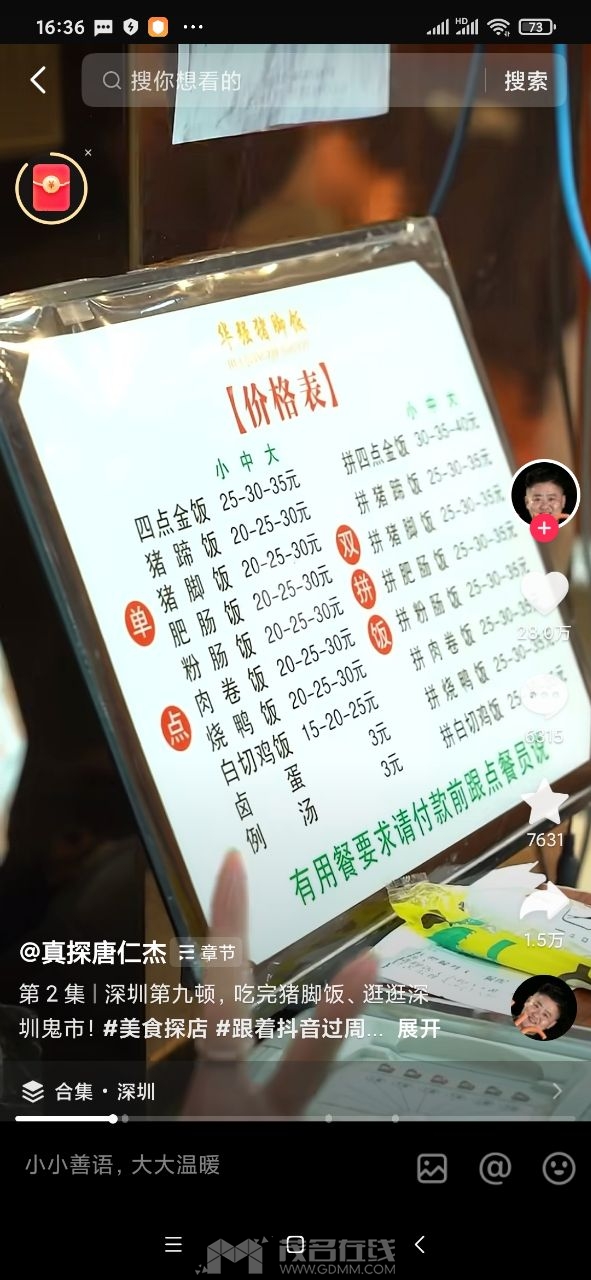 16:36
HD
73
搜你想看的
搜索
华强猪脚饭
【价格表】
小 中 大
四点金饭 25-30-35元
猪蹄饭 20-25-30元
猪脚饭 20-25-30元
肥肠饭 20-25-30元
粉肠饭 20-25-30元
肉卷饭 20-25-30元
烧鸭饭 20-25-30元
白切鸡饭 15-20-25元
卤蛋 3元
例汤 3元
单
点
小 中 大
拼四点金饭 30-35-40元
拼猪蹄饭 25-30-35元
拼猪脚饭 25-30-35元
拼肥肠饭 25-30-35元
拼粉肠饭 25-30-35元
拼肉卷饭 25-30-35元
拼烧鸭饭 25-30-35
拼白切鸡饭 25
双
拼
饭
有用餐要求请付款前跟点餐员说
28.9万
6315
7631
1.5万
@真探唐仁杰
章节
第2集|深圳第九顿，吃完猪脚饭、逛逛深
圳鬼市！#美食探店 #跟着抖音过周... 展开
合集·深圳
小小善语，大大温暖
茂名在线
WWW.GDMM.COM